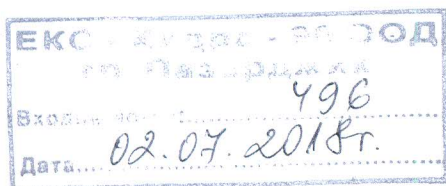 ЕКО - - 96 ООД
гр. Пазарджик
Входящ 496
Дата.... 02.07.2018г.